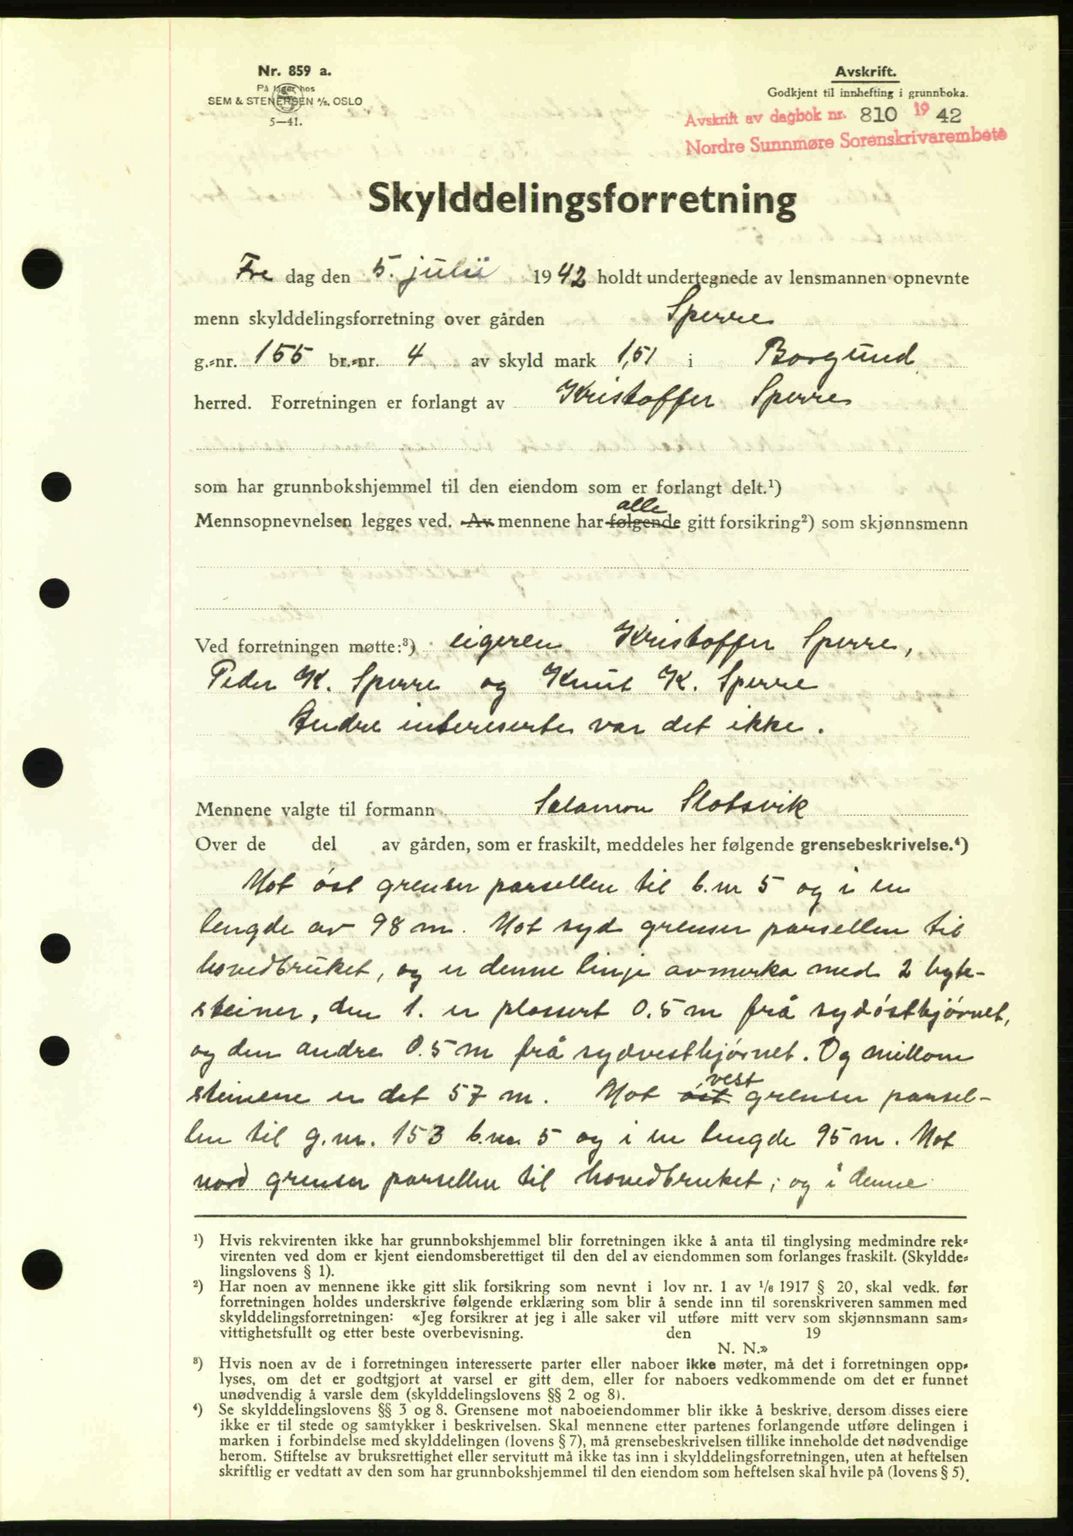 Nr. 859 a.
På lager hos
SEM & STENERSEN A/S, OSLO
5—41.
Avskrift.
Godkjent til innhefting i grunnboka.
Avskrift av dagbok nr. 810 19 42
Nordre Sunnmøre Sorenskrivarembete
Skylddelingsforretning
Fre dag den 5. juni 1942 holdt undertegnede av lensmannen opnevnte
menn skylddelingsforretning over gården Sperre
g.-nr. 155 br.-nr. 4 av skyld mark 1,51 i Borgund
herred. Forretningen er forlangt av Kristoffer Sperre
som har grunnbokshjemmel til den eiendom som er forlangt delt.¹)
alle
Mennsopnevnelsen legges ved. Av mennene har følgende gitt forsikring²) som skjønnsmenn
Ved forretningen møtte:³) eigeren Kristoffer Sperre,
Peder K. Sperre og Knut K. Sperre
Andre intereserte var det ikke.
Mennene valgte til formann Salamon Slotsvik
Over de del av gården, som er fraskilt, meddeles her følgende grensebeskrivelse.⁴)
Mot øst grenser parsellen til b.nr 5 og i en
lengde av 98 m. Mot syd grenser parsellen til
hovedbruket, og er denne linje avmerka med 2 byte-
steiner, den 1. er plassert 0.5 m frå sydøsthjørnet,
og den andre 0.5 m frå sydvesthjørnet. Og millom
steinene er det 57 m. Mot øst vest grenser parsel-
len til g.nr. 153 b.nr. 5 og i en lengde 95 m. Mot
nord grenser parsellen til hovedbruket; og i denne
¹) Hvis rekvirenten ikke har grunnbokshjemmel blir forretningen ikke å anta til tinglysing medmindre rek-
virenten ved dom er kjent eiendomsberettiget til den del av eiendommen som forlanges fraskilt. (Skyldde-
lingslovens § 1).
²) Har noen av mennene ikke gitt slik forsikring som nevnt i lov nr. 1 av 1/6 1917 § 20, skal vedk. før
forretningen holdes underskrive følgende erklæring som blir å sende inn til sorenskriveren sammen med
skylddelingsforretningen: «Jeg forsikrer at jeg i alle saker vil utføre mitt verv som skjønnsmann sam-
vittighetsfullt og etter beste overbevisning. den 19
N. N.»
³) Hvis noen av de i forretningen interesserte parter eller naboer ikke møter, må det i forretningen opp-
lyses, om det er godtgjort at varsel er gitt dem, eller for naboers vedkommende om det er funnet
unødvendig å varsle dem (skylddelingslovens §§ 2 og 8).
⁴) Se skylddelingslovens §§ 3 og 8. Grensene mot naboeiendommer blir ikke å beskrive, dersom disses eiere
ikke er til stede og samtykker i beskrivelsen. Skal mennene etter partenes forlangende utføre delingen i
marken i forbindelse med skylddelingen (lovens § 7), må grensebeskrivelsen tillike inneholde det nødvendige
herom. Stiftelse av bruksrettighet eller servitutt må ikke tas inn i skylddelingsforretningen, uten at heftelsen
skriftlig er vedtatt av den som har grunnbokshjemmel til den eiendom som heftelsen skal hvile på (lovens § 5).